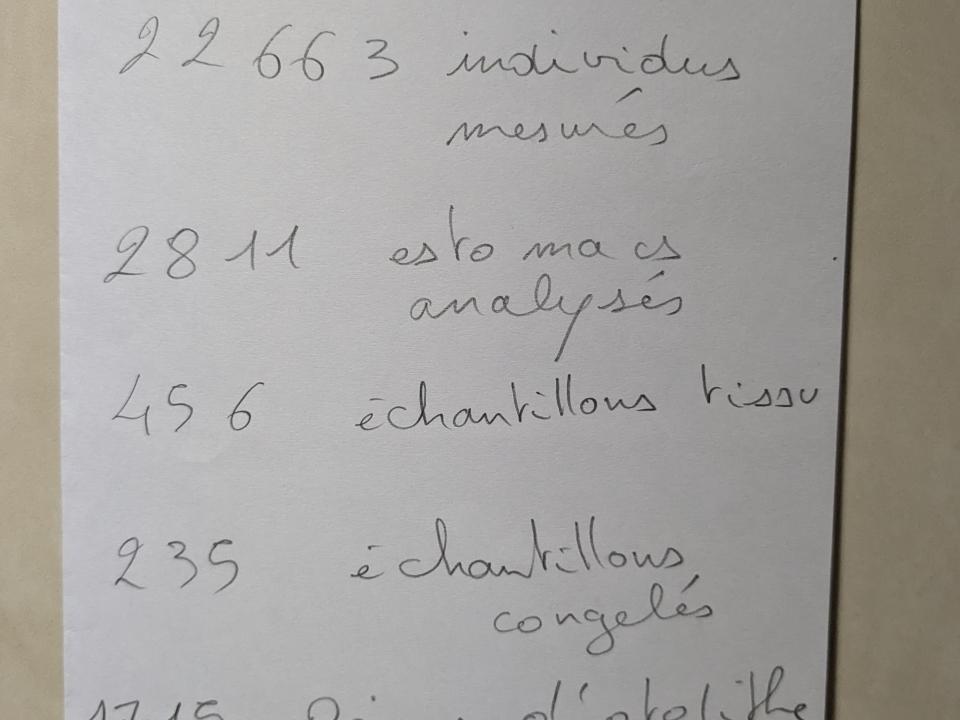 22663 individus
mesurés
2811 estomacs
analysés
456 échantillons tissu
235 échantillons
congelés
1715 d'otolithe